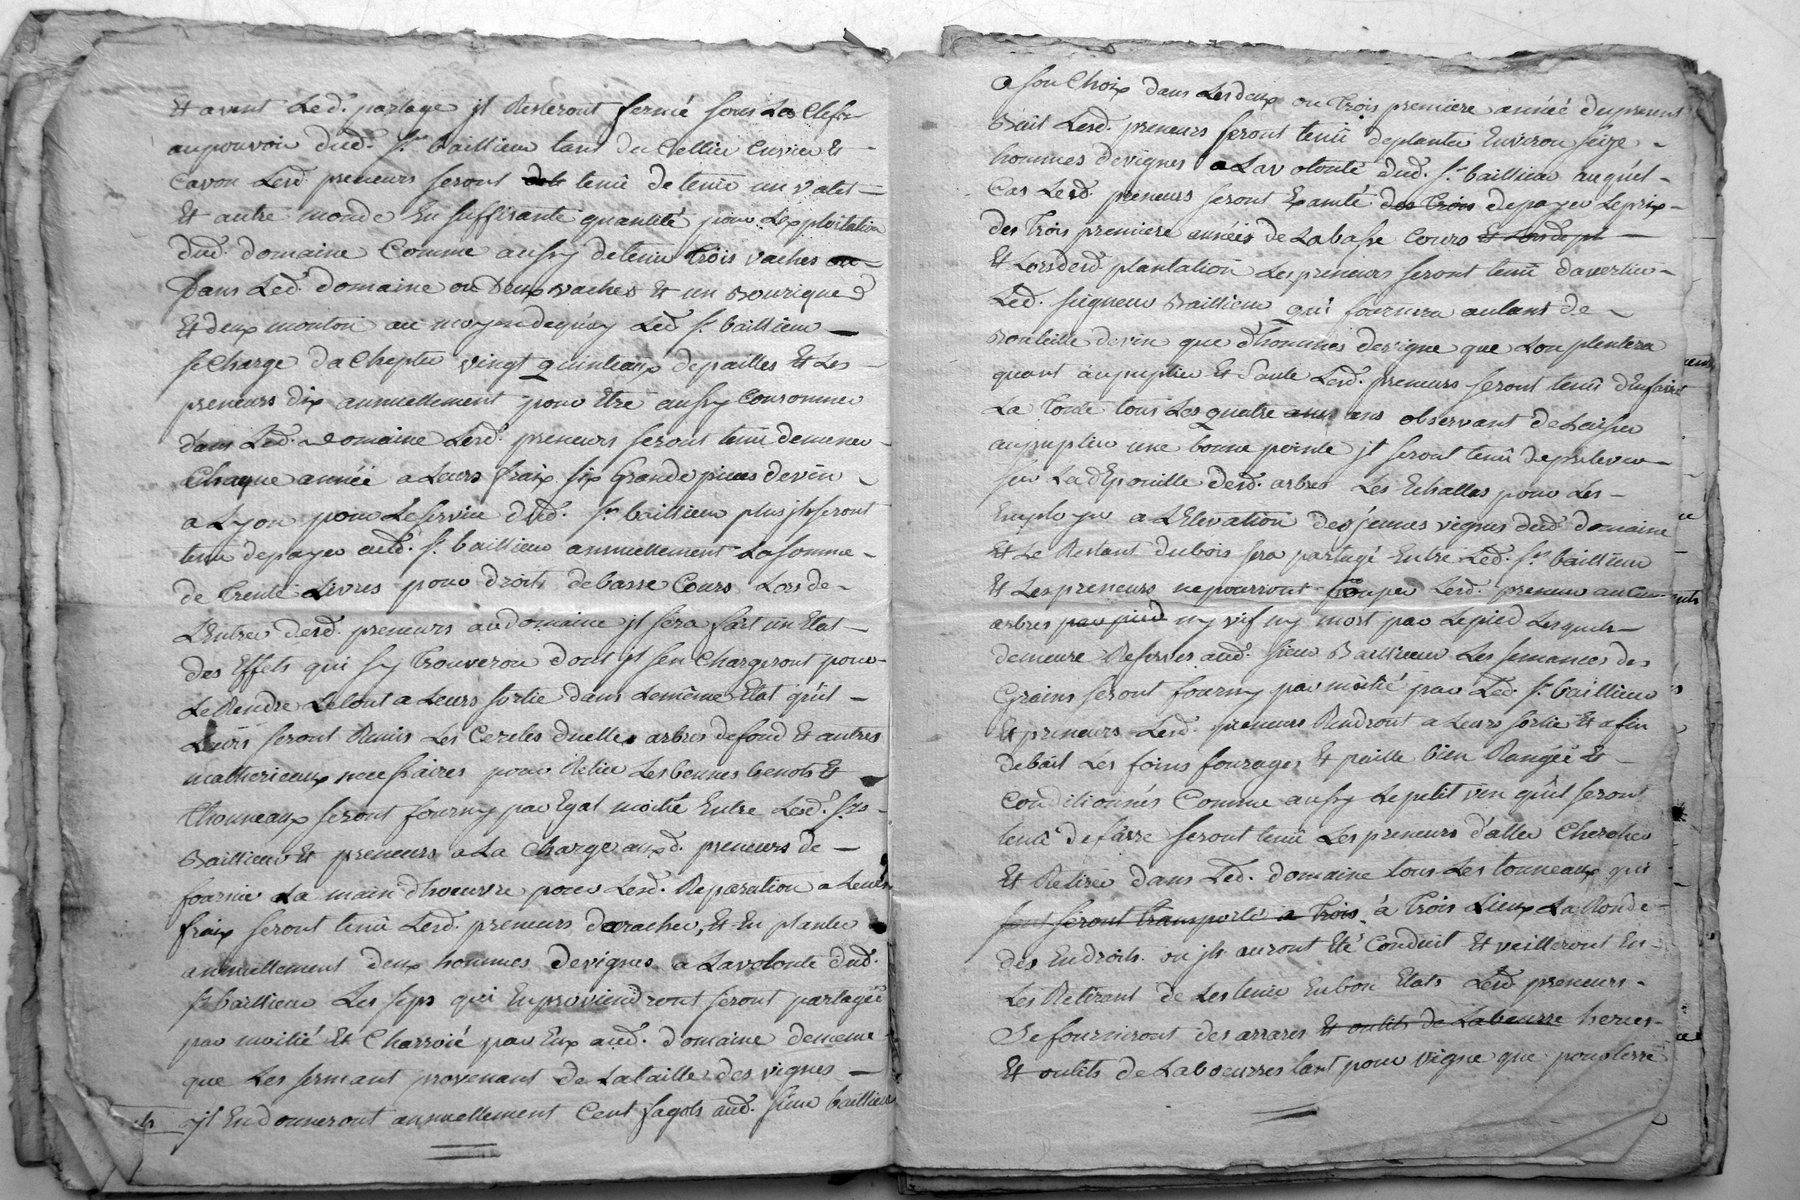 Et avant Led. partage jl Resteront fermé sous Les Clefs
au pouvoir dud. Sr. baillieu tant du Cellier Cuvier Et
Cavon Lesd preneurs seront tenû de tenir un valet
Et autre monde En suffisante quantité pour L'exploitation
dud. domaine Comme aussy de tenir trois vaches
Dans Led. domaine ou deux vaches Et un Bourique
Et deux mouton au moyen de quoy Led Sr. baillieu
se Charge d'achepter vingt quinteaux de pailles Et Les
preneurs dix annuellement pour Etre aussy Consommer
dans Led. domaine Lesd. preneurs seront tenû de mener
Chaque année a Leurs fraix six Grande pieces de vin
a Lyon pour Le service dud. Sr. baillieu plus jls seront
tenû de payer aud. Sr. baillieu annuellement La somme
de trente Livres pour droits de basse Cours Lors de
L'Entrée desd. preneurs au domaine jl sera fait un Etat
des Effets qui sy trouveron dont jls sen Chargeront pour
Le Rendre Le tout a Leurs sortie dans Le même Etat qu'il
Leurs seront Remis Les Cercles duelles arbres de fond Et autres
matherieaux necessaires pour Relier Les bennes benots Et
thonneaux seront fourny par Egal moitié Entre Lesd. Srs
Baillieu Et preneurs a La Charge auxd. preneurs de
fournir La main d'hoeuvre pour Lesd. Reparation a Leurs
fraix seront tenû Lesd. preneurs d'aracher, Et En planter
annuellement deux hommes de vignes a La volonté dud.
Sr baillieu Les seps qui En proviendront seront partagée
par moitié Et Charroié par Eux aud. domaine de meme
que Les serment provenant de La taille des vignes
jls En donneront annuellement Cent fagots aud. sieur baillieu
a son Choix dans Les deux ou trois premiere année du present
Bail Lesd. preneurs seront tenû de planter Environ seize
hommes de vignes a La volonté dud. Sr. baillieu auquel
Cas Lesd preneurs seront Examté des trois de payer Le prix
des trois premiere années de La basse Cours Et Lors de pl
Et Lors desd plantation Les preneurs seront tenû d'avertir
Led. seigneur Baillieu qui fournira autant de
Bouteille de vin que d'hommes de vigne que L'on plantera
quant aux puplier Et Saule Lesd. preneurs seront tenû d'En faire
La tonte tous Les quatre ans ans observant de Laisser
au puplier une bonne pointe jl seront tenû de prelever
sur La dEpouille desd. arbres Les Echallas pour Les
Employer a L'Elevation des jeunes vignes dud. domaine
Et Le Restant du bois sera partagé Entre Led. Sr. baillieu
Et Les preneurs ne pourront Couper Lesd. preneur aucun
arbres par pied ny vif ny mort par Le pied Lesquels
demeure Reservés aud. sieur Baillieu Les semances des
Grains seront fourny par moitié par Led. Sr. baillieu
Et preneurs Lesd. preneurs Rendront a Leurs sortie Et a fin
de bail Les foins fourages Et paille bien Rangée Et
Conditionnés Comme aussy Le petit vin qu'il seront
tenû de faire seront tenû Les preneurs d'aller Chercher
Et Retirer dans Led. domaine tous Les tonneaux qui
sont seront transporté a trois à trois Lieux La Ronde
des Endroits ou jls auront Eté Conduit Et veilleront En
Les Retirant de Les tenir En bon Etats Lesd preneurs
Se fourniront des arrares Et outils de Labeurre herses
Et outils de Laboeurres tant pour vigne que pour terre